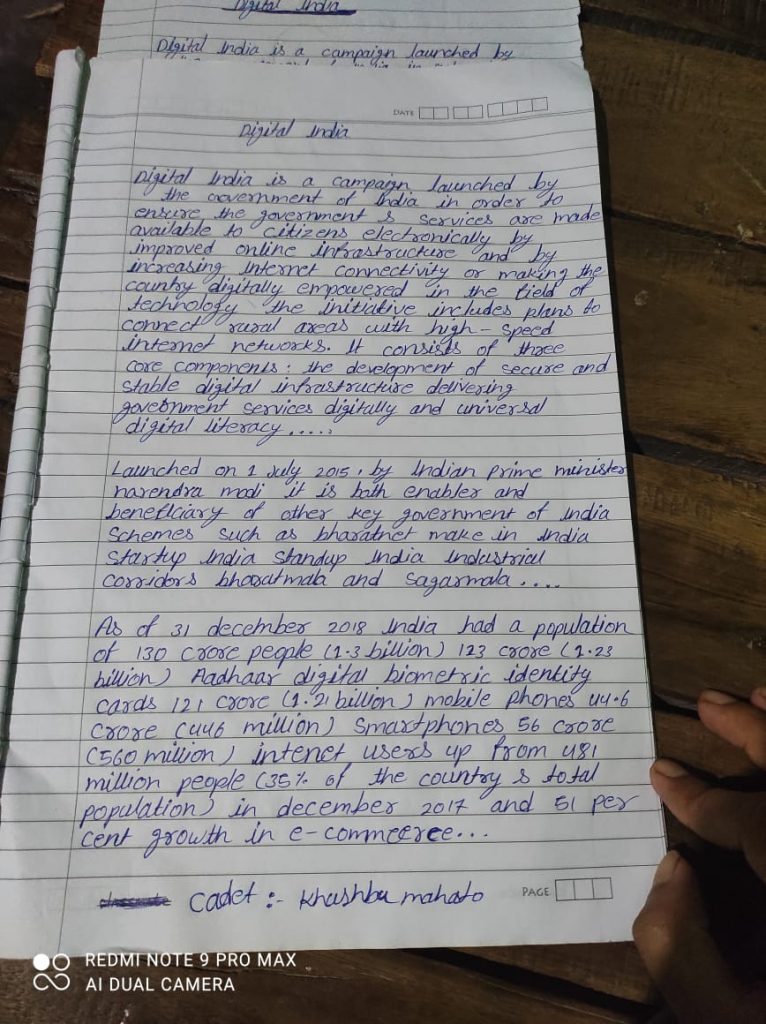 Digital India
Digital India is a campaign launched by
DATE
Digital India
Digital India is a campaign launched by
the Government of India in order to
ensure the government s services are made
available to citizens electronically by
improved online infrastructure and by
increasing Internet connectivity or making the
country digitally empowered in the field of
technology the initiative includes plans to
connect rural areas with high-speed
internet networks. It consists of three
core components: the development of secure and
stable digital infrastructure delivering
government services digitally and universal
digital literacy.....
Launched on 1 July 2015, by Indian prime minister
narendra modi it is both enabler and
beneficiary of other key government of India
schemes such as bharatnet make in India
startup India standup India industrial
corridors bharatmala and sagarmala....
As of 31 december 2018 India had a population
of 130 crore people (1.3 billion) 123 crore (1.23
billion) Aadhaar digital biometric identity
cards 121 crore (1.21 billion) mobile phones 44.6
crore (446 million) smartphones 56 crore
(560 million) intenet users up from 481
million people (35% of the country s total
population) in december 2017 and 51 per
cent growth in e-commeerce...
Cadet :- Khushbu mahato
PAGE
REDMI NOTE 9 PRO MAX
AI DUAL CAMERA